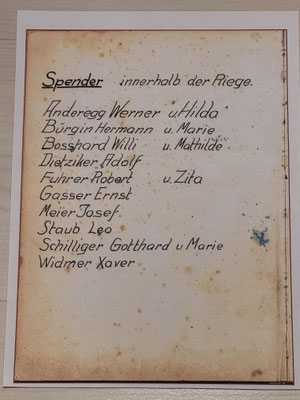 Spender innerhalb der Riege.
Anderegg Werner u Hilda
Bürgin Hermann u. Marie
Bosshard Willi u. Mathilde
Dietziker Adolf
Fuhrer Robert u. Zita
Gasser Ernst
Meier Josef
Staub Leo
Schilliger Gotthard u Marie
Widmer Xaver